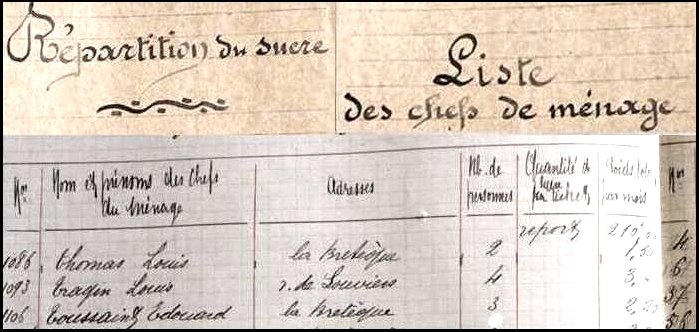 Répartition du sucre
Liste
des chefs de ménage
Nos Nom et prénoms des chefs du Ménage Adresses Nb. de personnes Quantité Poids par mois Nos
report 210
1086 Thomas Louis la Bretèque 2 1,50 4
1093 Tragin Louis r. de Louviers 4 3,- 6
1106 Toussaint Edouard la Bretèque 3 2,25 37